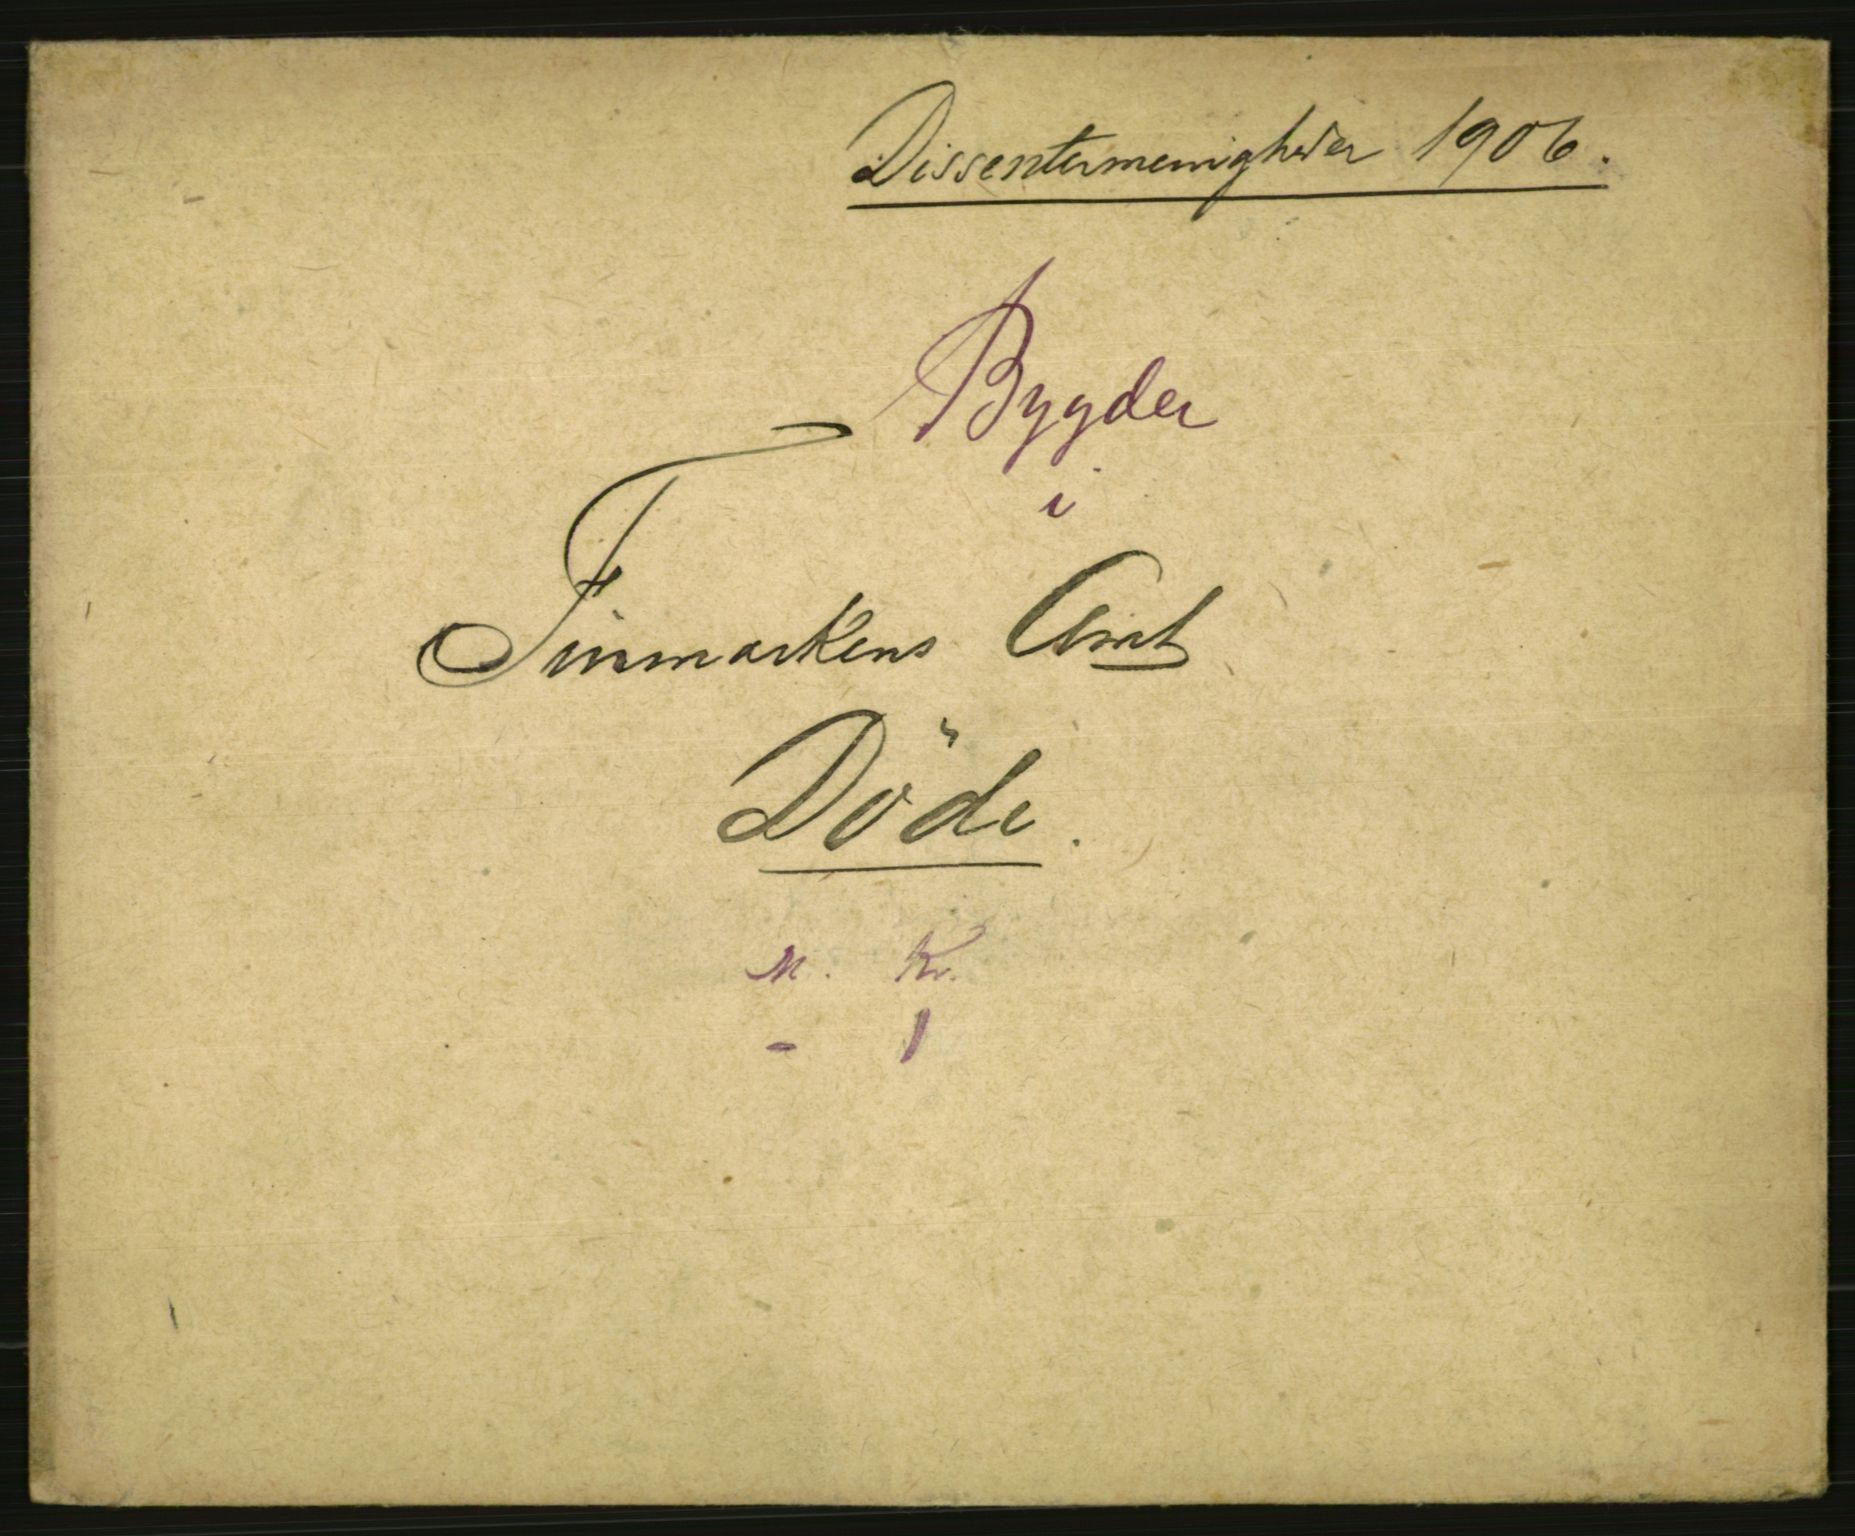 Dissentermenigheder 1906.
Bygder
i
Finmarkens Amt
Döde.
M. Kv.
- 1